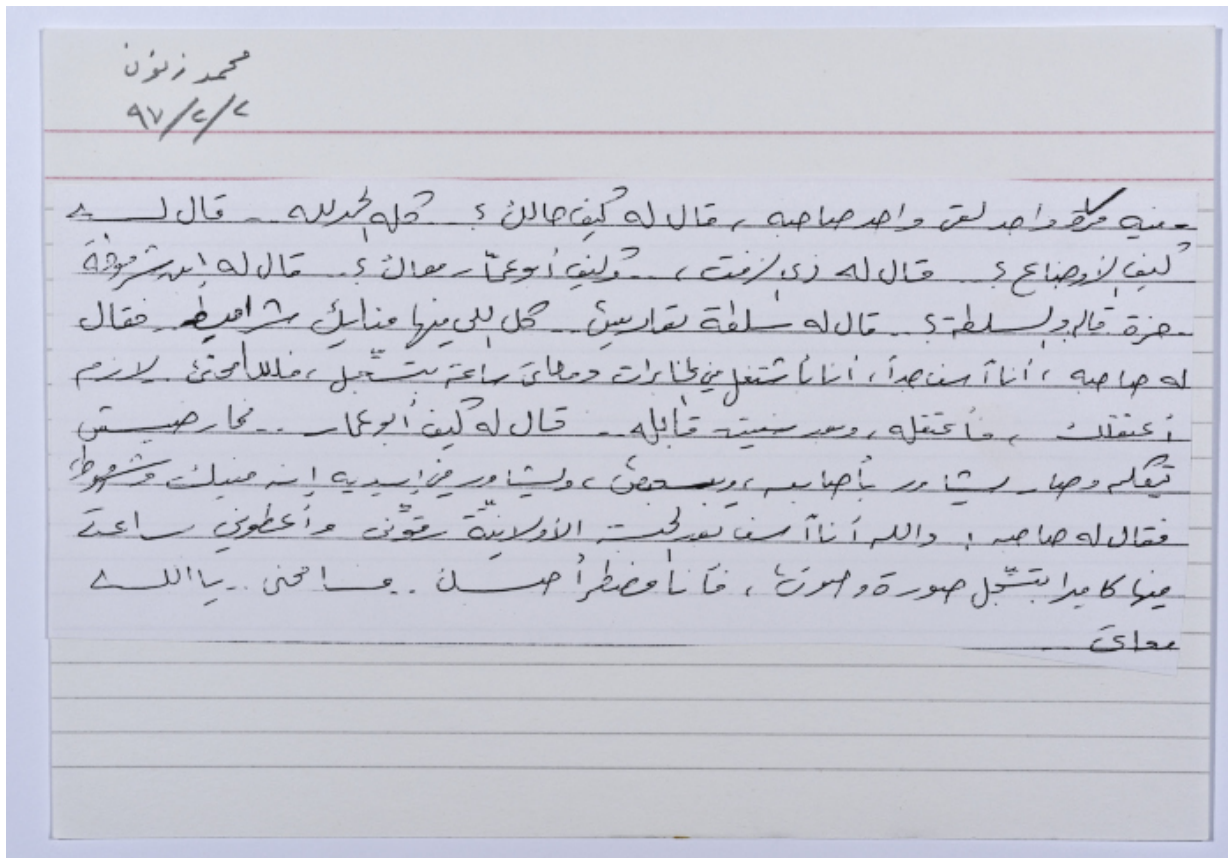 محمد زنون
٩٧/٢/٢
فيه مرة واحد لقى واحد صاحبه، قال له كيف حالك؟ قله الحمد لله.. قال له
كيف الأوضاع؟ قال له زي الزفت، .. وكيف أبو عمار معاك؟ قال له ابن شرموطة
قال والسلطة؟ قال له سلطة.. كل اللي فيها منايك شراميط. فقال
له صاحبه، أنا آسف جداً، أنا بأشتغل في مخابرات ومعاي ساعة بتسّجل، لازم
أعتقلك، فأعتقله، وبعد سنتين قابله.. قال له كيف أبو عمار..
يتكلم وصار يشاور بأصابعه، ويشاور في إيديه إنه منيك وشرموط
فقال له صاحبه: والله أنا آسف بعد الأولانية رقّوني وأعطوني ساعة
فيها كاميرا بتسّجل صورة وصوت، فأنا مضطر.. سامحني.. يا الله
معاي